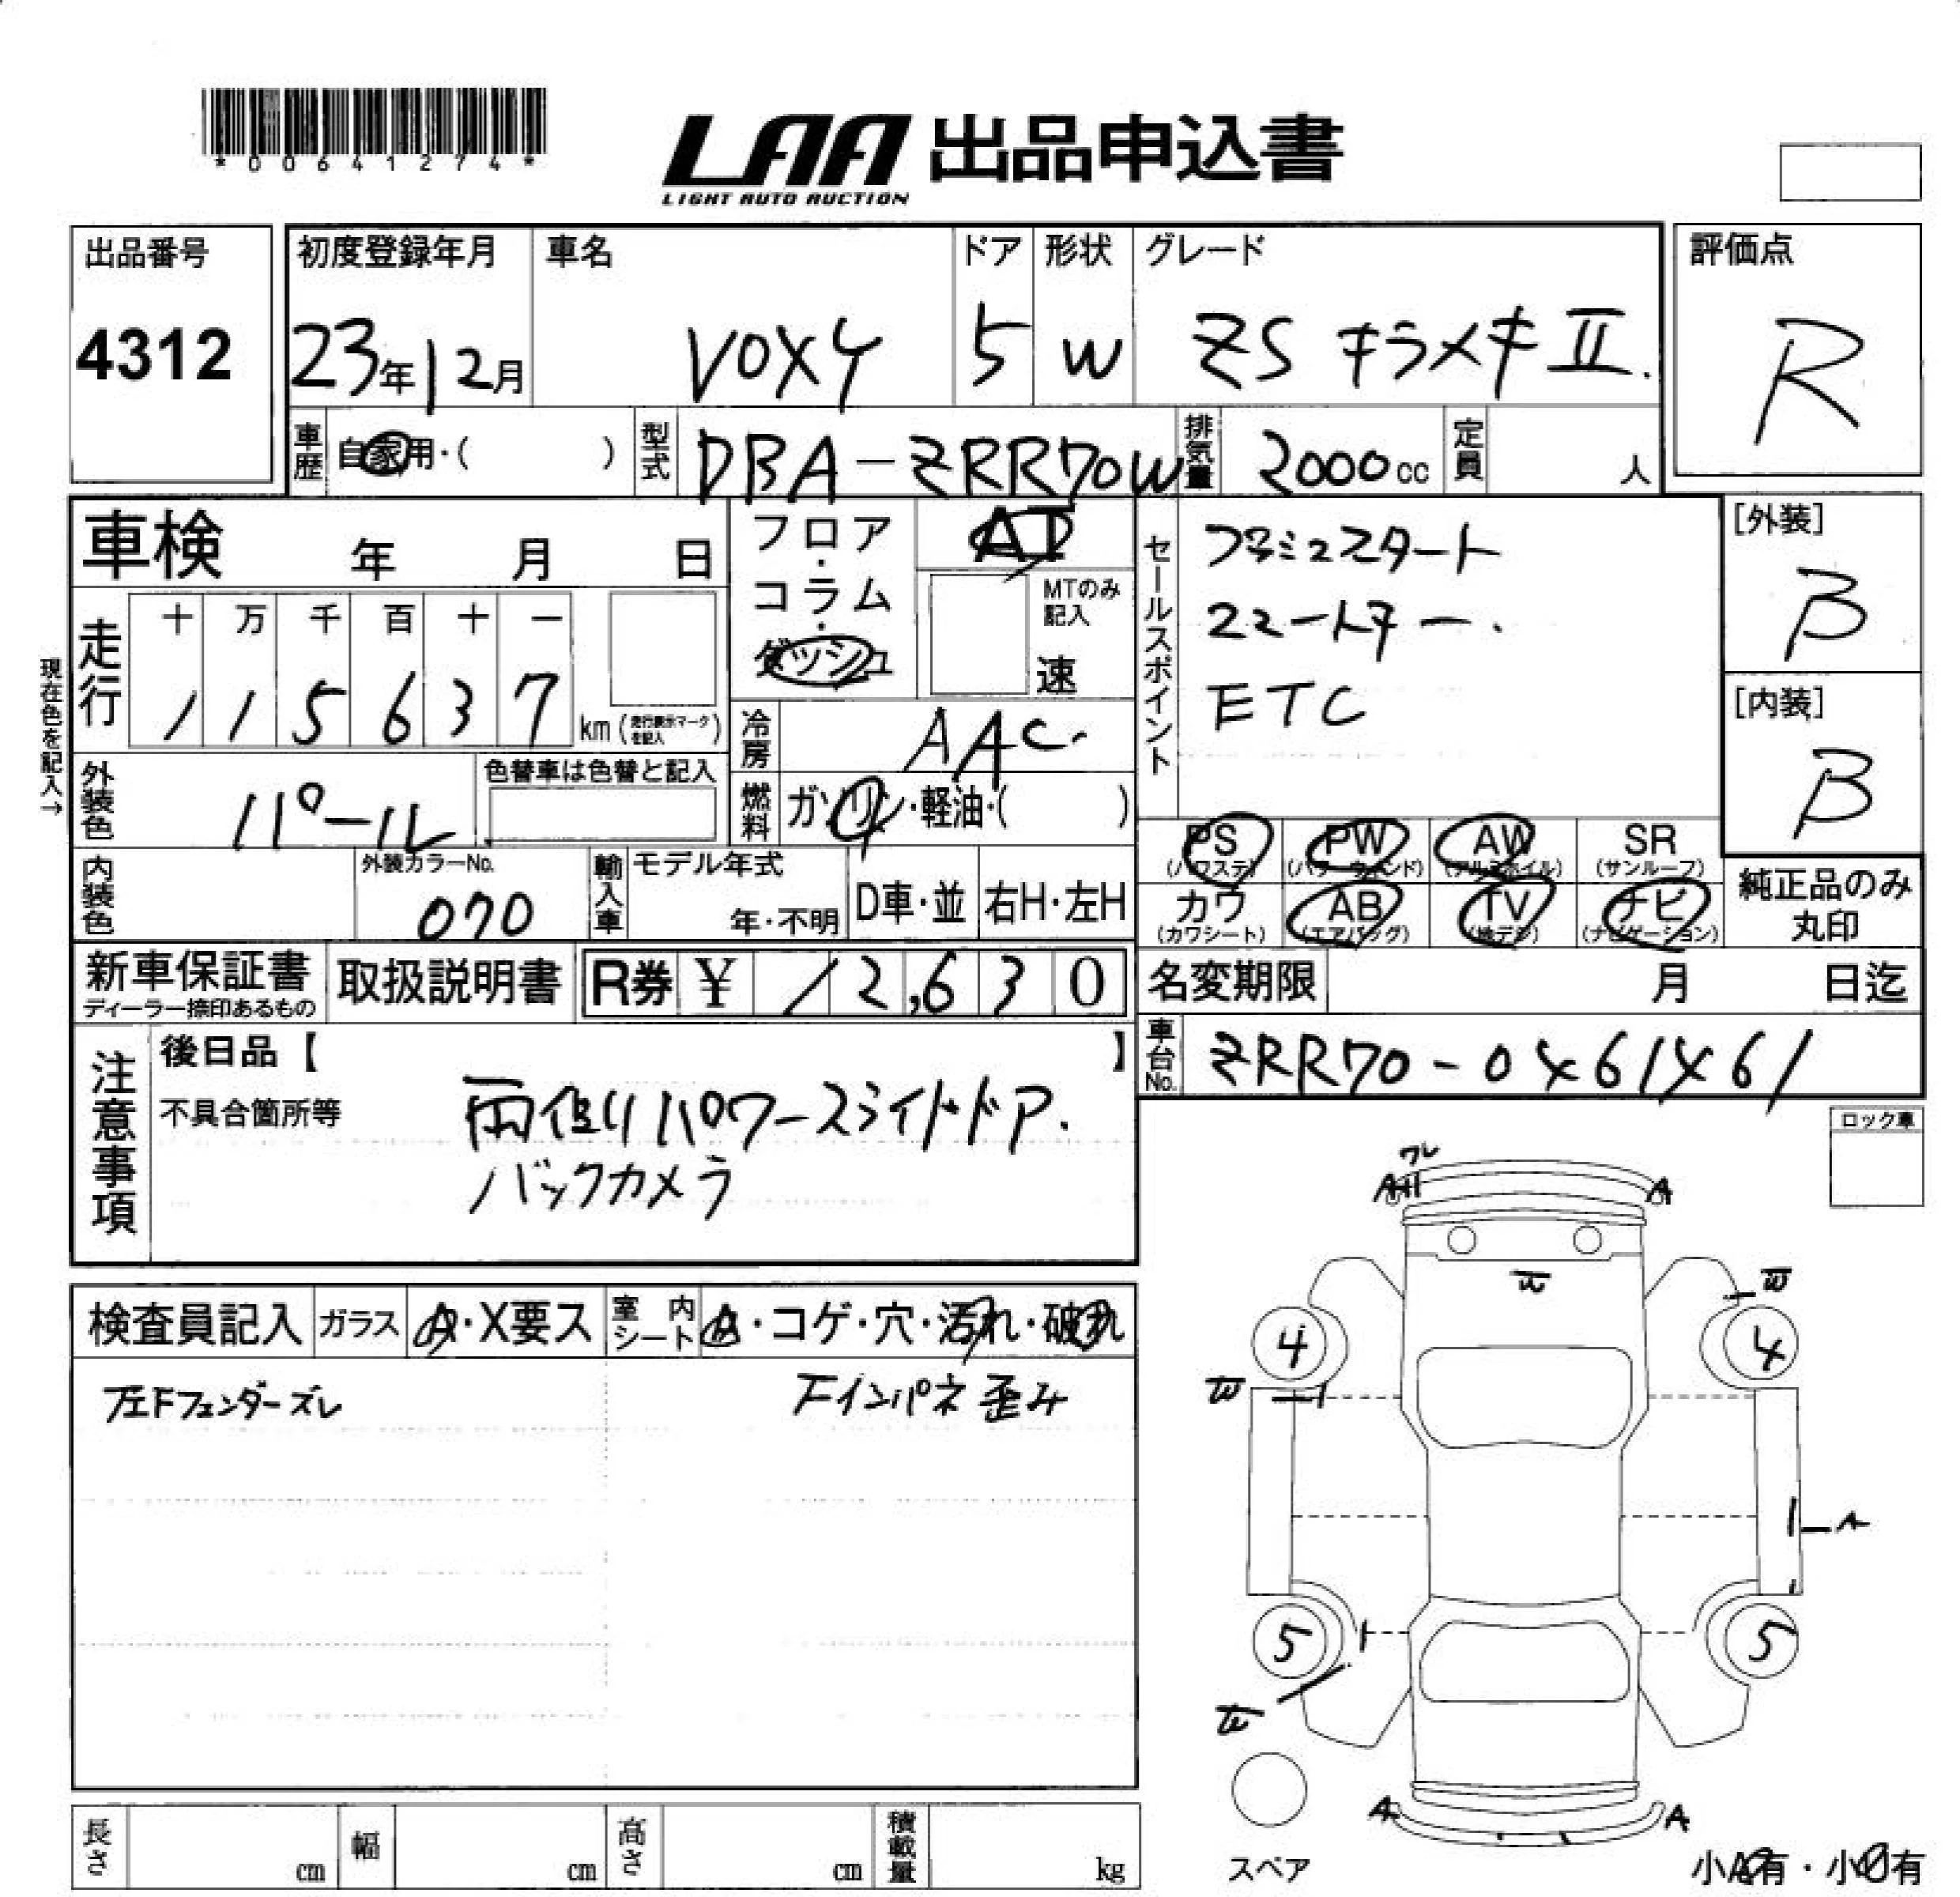 *00641274*
LAA 出品申込書
LIGHT AUTO AUCTION
出品番号
4312
初度登録年月
23年12月
車名
VOXY
ドア
5
形状
W
グレード
ZS キラメキⅡ.
評価点
R
車歴
自家用・( )
型式
DBA-ZRR70W
排気量
2000cc
定員
人
車検 年 月 日
フロア・コラム・ダッシュ
AT
MTのみ記入
速
セールスポイント
プッシュスタート
スマートキー.
ETC
[外装]
B
[内装]
B
現在色を記入→
走行
十 万 千 百 十 一
1 1 5 6 3 7
km(走行表示マークを記入)
冷房
AAC.
外装色
パール
色替車は色替と記入
燃料
ガソリン・軽油・( )
PS
(パワステ)
PW
(パワーウィンド)
AW
(アルミホイル)
SR
(サンルーフ)
カワ
(カワシート)
AB
(エアバッグ)
TV
(地デジ)
ナビ
(ナビゲーション)
純正品のみ
丸印
内装色
外装カラーNo.
070
輸入車
モデル年式
年・不明
D車・並
右H・左H
新車保証書
ディーラー捺印あるもの
取扱説明書
R券 ¥ 12,630
名変期限 月 日迄
車台No.
ZRR70-0461461
注意事項
後日品【 】
不具合箇所等
両側パワースライドドア.
バックカメラ
ロック車
検査員記入
ガラス
A・X要ス
室内シート
・コゲ・穴・汚れ・破れ
左Fフェンダーズレ
Fインパネ歪み
ワレ
A
A
W
W
4
4
W
A
5
5
W
A
A
スペア
小A有・小U有
長さ
cm
幅
cm
高さ
cm
積載量
kg